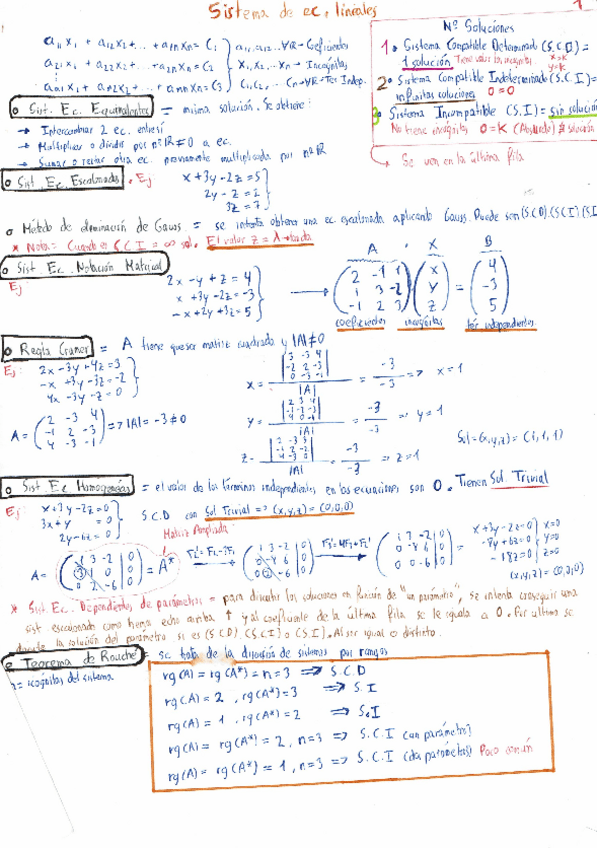 Sistema de ec. lineales
1
a₁₁x₁ + a₁₂x₂ + ... + a₁ₙxₙ = C₁
a₂₁x₁ + a₂₂x₂ + ... + a₂ₙxₙ = C₂
x₁, x₂, ... xₙ → Incógnitas
Nº Soluciones
1. Sistema Compatible Determinado (S.C.D) =
1 solución
2. Sistema Compatible Indeterminado (S.C.I) =
infinitas soluciones 0=0
3. Sistema Incompatible (S.I) = sin solución
No tiene incógnitas 0=K (Absurdo)
Se ven en la última fila
Sist. Ec. Equivalentes = misma solución. Se obtiene:
→ Intercambiar 2 ec. entre sí
→ Multiplicar o dividir por nº R ≠ 0 a ec.
→ Sumar o restar otra ec. previamente multiplicada por nº R
Sist. Ec. Escalonados. Ej:
x + 3y - 2z = 5
3z = 7
Método de eliminación de Gauss = se intenta obtener una ec escalonada aplicando Gauss. Puede ser (S.C.D) (S.C.I) (S.I)
* Nota = Cuando es S.C.I = ∞ sol. El valor z = λ
Sist Ec. Notación Matricial
Ej:
2x - y + z = 4
x + 3y - 2z = -3
-x + 2y + 3z = 5
A · X = B
2 -1 1 x 4
1 3 -2 y -3
-1 2 3 z 5
coeficientes incógnitas tér independientes
Regla Cramer = A tiene que ser matriz cuadrada y |A| ≠ 0
Ej:
2x - 3y - 4z = 3
-x + 3y - 3z = -2
4x - 3y - z = 0
=> |A| = -3 ≠ 0
x = = -3/-3 => x = 1
y = = -3/-3 => y = 1
z = = -3/-3 => z = 1
Sol = (x, y, z) = (1, 1, 1)
Sist. Ec Homogéneas = el valor de los términos independientes en las ecuaciones son 0. Tienen Sol. Trivial
Ej:
x + 3y - 2z = 0
3x + y = 0
2y - 6z = 0
S.C.D con Sol Trivial => (x, y, z) = (0, 0, 0)
Matriz Ampliada
A = = A*
1 3 -2 | 0
3 1 0 | 0
0 2 -6 | 0
x + 3y - 2z = 0 x=0
-8y + 6z = 0 y=0
-18z = 0 z=0
(x, y, z) = (0, 0, 0)
* Sist Ec. Dependientes de parámetros = para discutir las soluciones en función de "un parámetro", se intenta conseguir una
sist escalonado como hemos echo arriba ↑ y al coeficiente de la última fila se le iguala a 0. Por último se
la solución del parámetro si es (S.C.D), (S.C.I) o (S.I). Al ser igual o distinto.
Teorema de Rouché = se trata de la discusión de sistemas por rangos
n = incógnitas del sistema
rg(A) = rg(A*) = n = 3 => S.C.D
rg(A) = 2, rg(A*) = 3 => S.I
rg(A) = 1, rg(A*) = 2 => S.I
rg(A) = rg(A*) = 2, n = 3 => S.C.I (un parámetro)
rg(A) = rg(A*) = 1, n = 3 => S.C.I (dos parámetros) Poco común